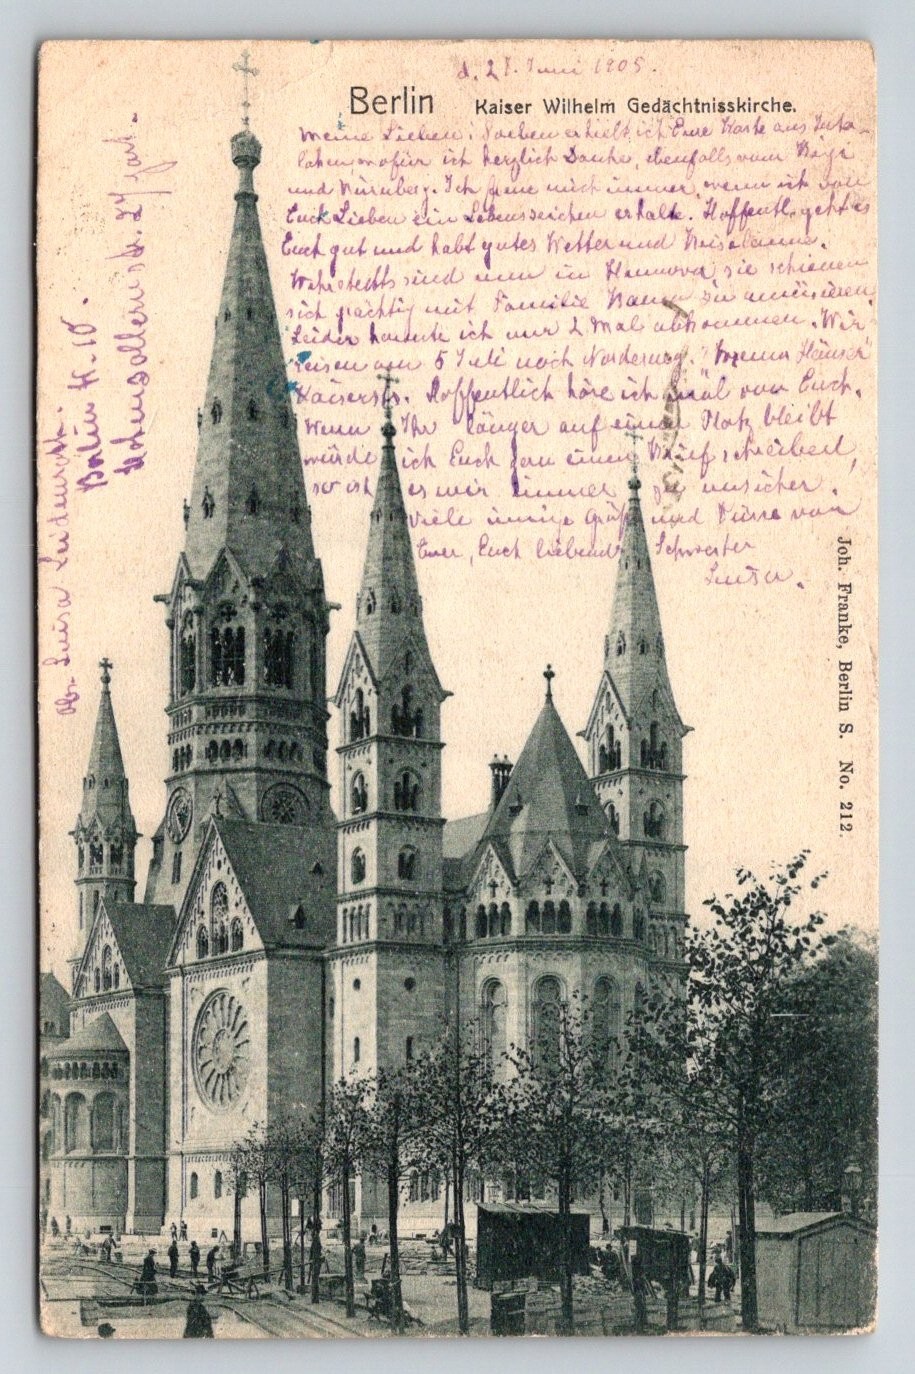 d. 27. Juni 1905.
Berlin Kaiser Wilhelm Gedächtnisskirche.
Meine Lieben! Soeben erhielt ich Eure Karte aus Inter-
laken wofür ich herzlich Danke, ebenfalls vom
und Nürnberg. Ich freue mich immer, wenn ich von
Euch Lieben ein Lebenszeichen erhalte. Hoffentl. geht es
Euch gut und habt gutes Wetter und Reiselaune.
sind nun in Hannover, sie schienen
sich prächtig mit Familie zu amüsieren.
Leider konnte ich nur 2 Mal abkommen. Wir
reisen am 5 Juli nach Norderney. Häuser
Kaiserstr. Hoffentlich höre ich mal von Euch.
Wenn Ihr länger auf einem Platz bleibt
würde ich Euch einen Brief schreiben,
so ist es mir immer zu unsicher.
Viele innige Grüße und Küsse von
Eurer, Euch liebenden Schwester
Luisa.
Abs. Luisa
Berlin W. 10.
Hohenzollernstr. 27
Joh. Franke, Berlin S. No. 212.